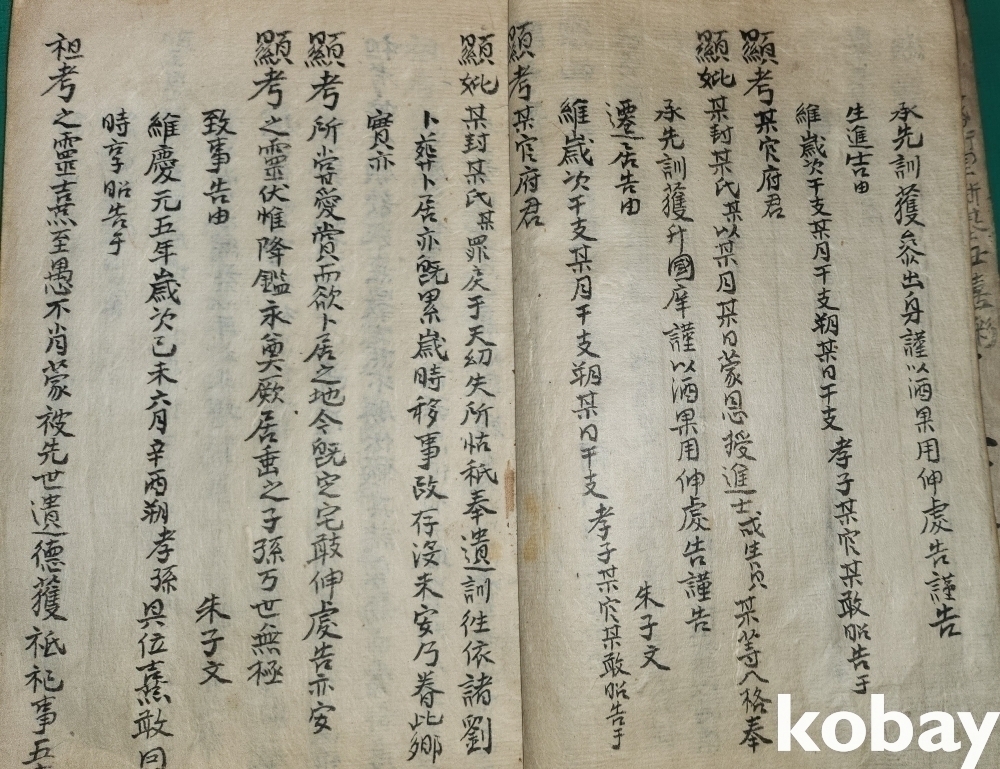 承先訓獲叅出身謹以酒果用伸虔告謹告
生進告由
維歲次干支某月干支朔某日干支 孝子某官某敢昭告于
顯考某官府君
顯妣某封某氏某以某月某日蒙恩授進士或生員某等入格奉
承先訓獲升國庠謹以酒果用伸虔告謹告
遷居告由 朱子文
維歲次干支某月干支朔某日干支 孝子某官某敢昭告于
顯考某官府君
顯妣某封某氏某罪戾于天幼失所怙秪奉遺訓徃依諸劉
卜葬卜居亦旣累歲時移事改存沒未安乃眷此鄉
實亦
顯考所甞愛賞而欲卜居之地今旣定宅敢伸虔告亦安
顯考之靈伏惟降鑑永奠厥居垂之子孫万世無極
致事告由 朱子文
維慶元五年歲次己未六月辛酉朔孝孫具位熹敢因
時享昭告于
祖考之靈熹至愚不肖蒙被先世遺德獲祗祀事五
kobay